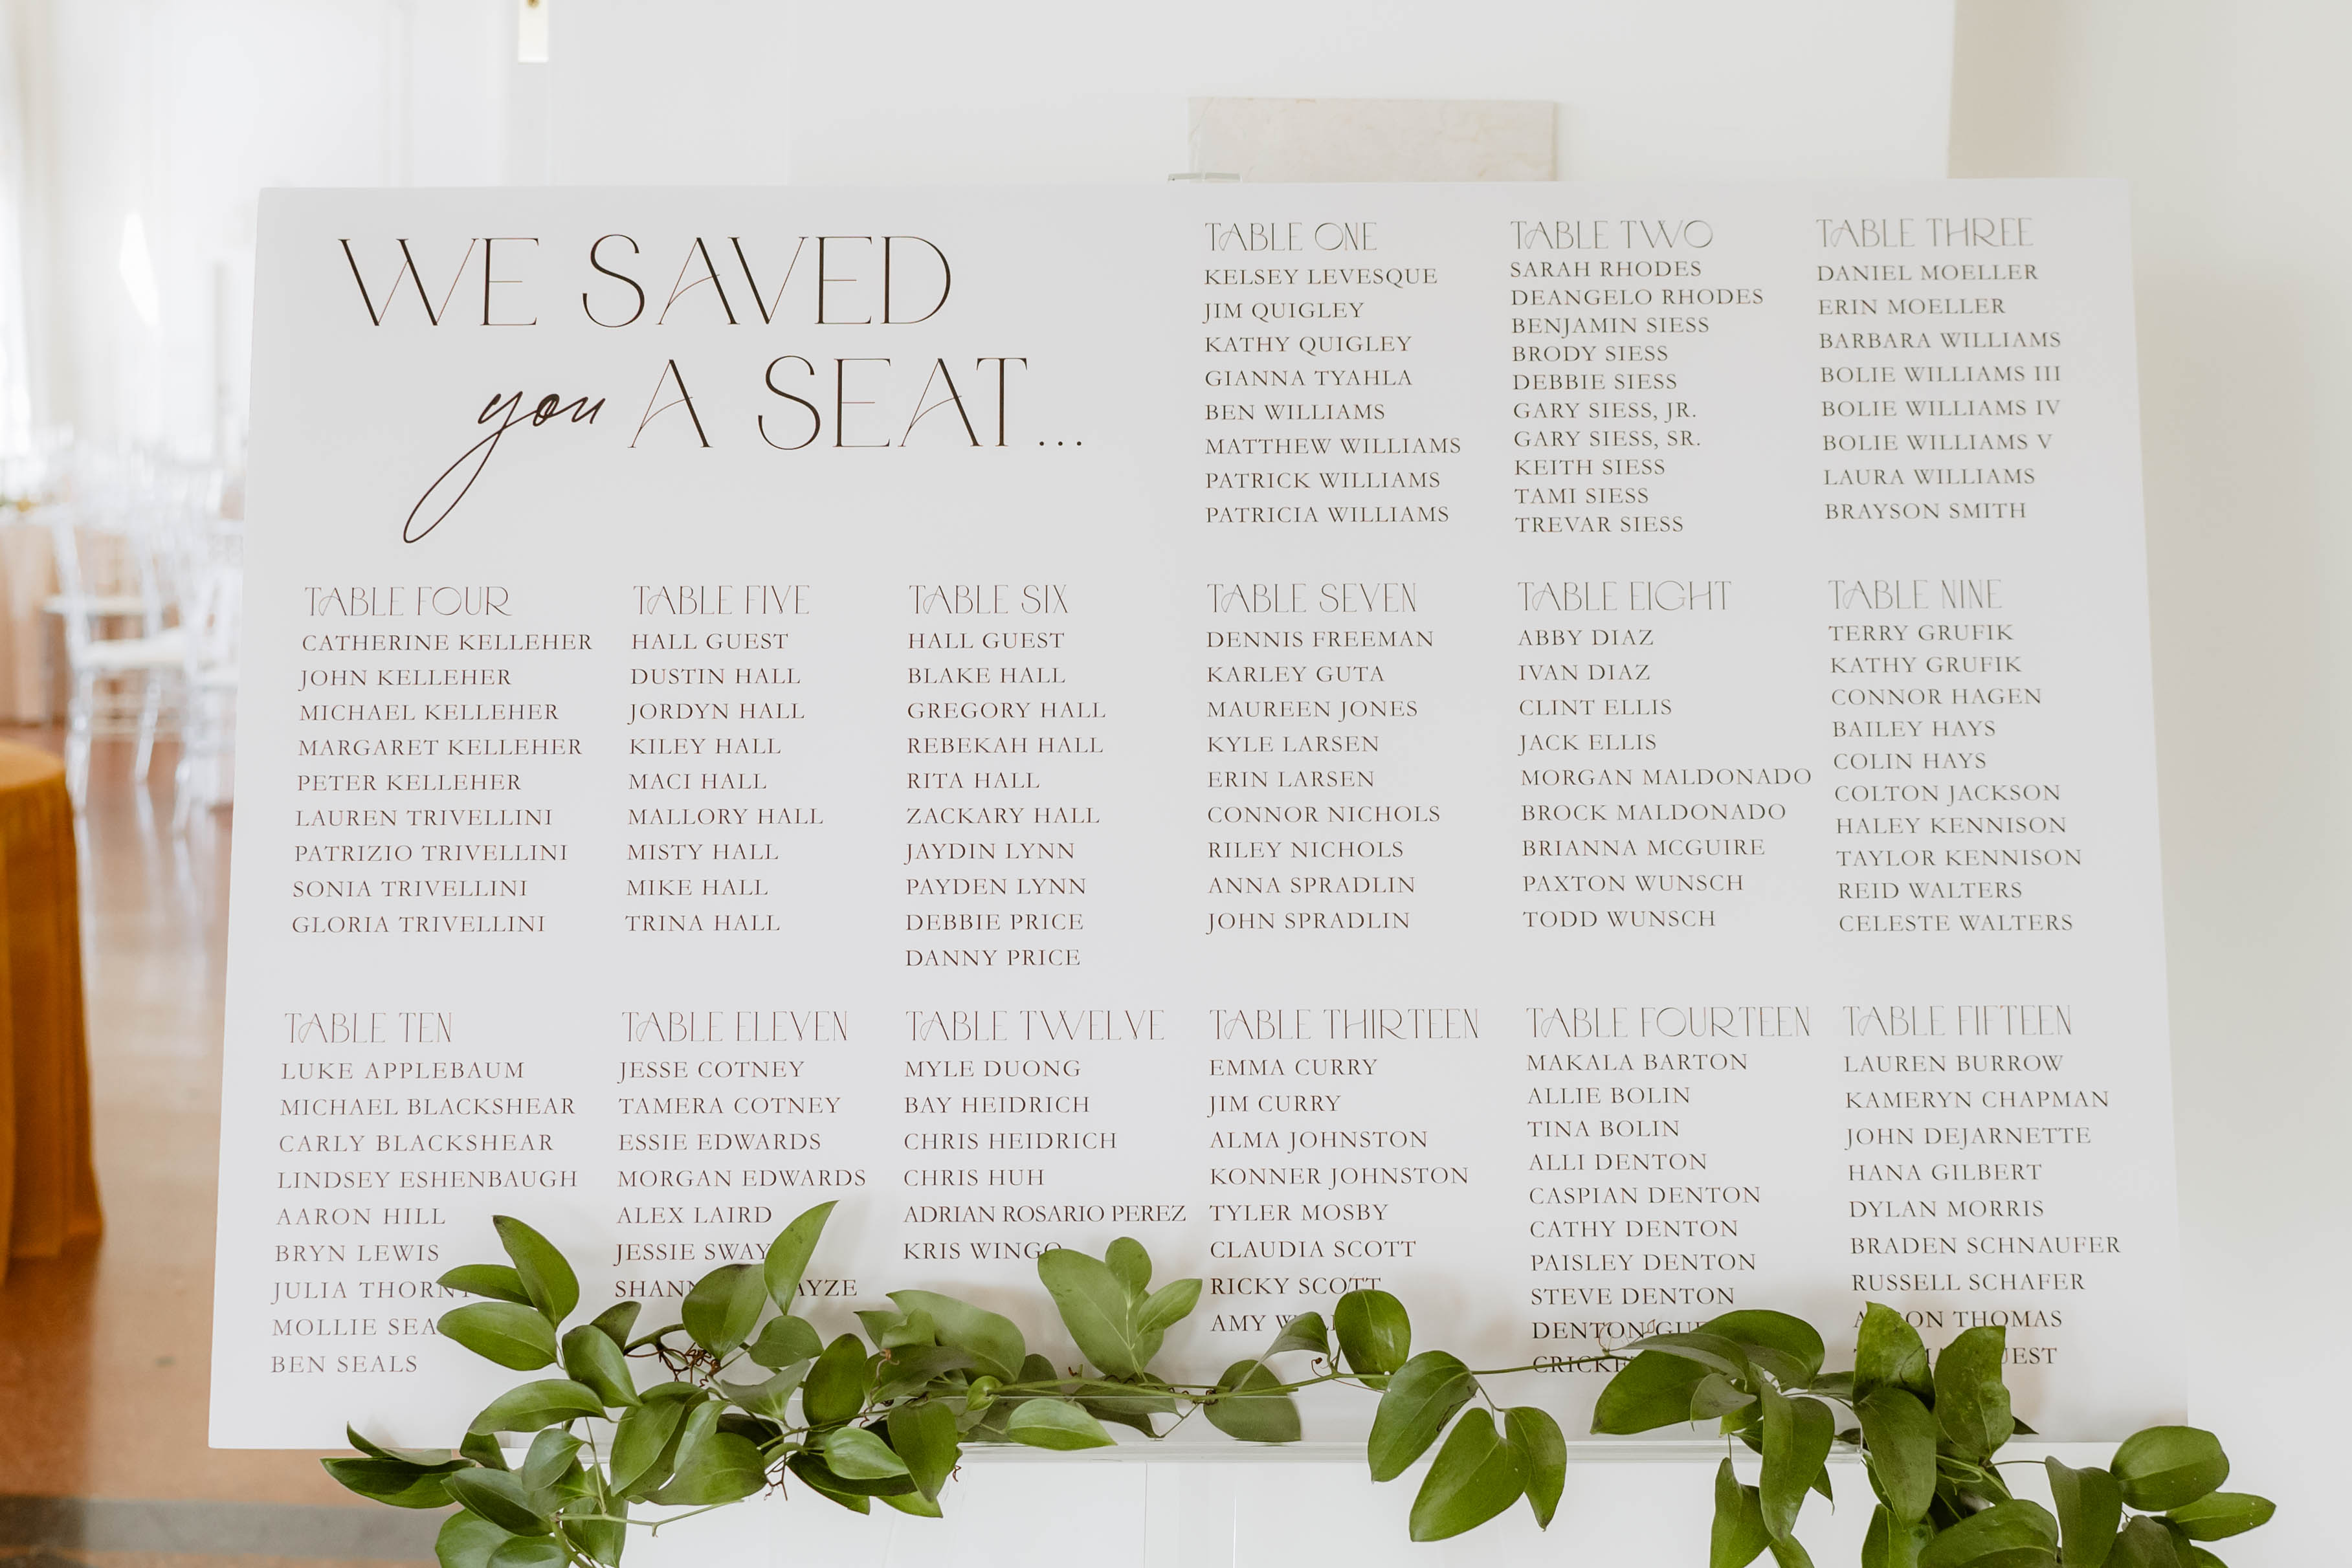 WE SAVED
you A SEAT...
TABLE ONE
KELSEY LEVESQUE
JIM QUIGLEY
KATHY QUIGLEY
GIANNA TYAHLA
BEN WILLIAMS
MATTHEW WILLIAMS
PATRICK WILLIAMS
PATRICIA WILLIAMS
TABLE TWO
SARAH RHODES
DEANGELO RHODES
BENJAMIN SIESS
BRODY SIESS
DEBBIE SIESS
GARY SIESS, JR.
GARY SIESS, SR.
KEITH SIESS
TAMI SIESS
TREVAR SIESS
TABLE THREE
DANIEL MOELLER
ERIN MOELLER
BARBARA WILLIAMS
BOLIE WILLIAMS III
BOLIE WILLIAMS IV
BOLIE WILLIAMS V
LAURA WILLIAMS
BRAYSON SMITH
TABLE FOUR
CATHERINE KELLEHER
JOHN KELLEHER
MICHAEL KELLEHER
MARGARET KELLEHER
PETER KELLEHER
LAUREN TRIVELLINI
PATRIZIO TRIVELLINI
SONIA TRIVELLINI
GLORIA TRIVELLINI
TABLE FIVE
HALL GUEST
DUSTIN HALL
JORDYN HALL
KILEY HALL
MACI HALL
MALLORY HALL
MISTY HALL
MIKE HALL
TRINA HALL
TABLE SIX
HALL GUEST
BLAKE HALL
GREGORY HALL
REBEKAH HALL
RITA HALL
ZACKARY HALL
JAYDIN LYNN
PAYDEN LYNN
DEBBIE PRICE
DANNY PRICE
TABLE SEVEN
DENNIS FREEMAN
KARLEY GUTA
MAUREEN JONES
KYLE LARSEN
ERIN LARSEN
CONNOR NICHOLS
RILEY NICHOLS
ANNA SPRADLIN
JOHN SPRADLIN
TABLE EIGHT
ABBY DIAZ
IVAN DIAZ
CLINT ELLIS
JACK ELLIS
MORGAN MALDONADO
BROCK MALDONADO
BRIANNA MCGUIRE
PAXTON WUNSCH
TODD WUNSCH
TABLE NINE
TERRY GRUFIK
KATHY GRUFIK
CONNOR HAGEN
BAILEY HAYS
COLIN HAYS
COLTON JACKSON
HALEY KENNISON
TAYLOR KENNISON
REID WALTERS
CELESTE WALTERS
TABLE TEN
LUKE APPLEBAUM
MICHAEL BLACKSHEAR
CARLY BLACKSHEAR
LINDSEY ESHENBAUGH
AARON HILL
BRYN LEWIS
JULIA
MOLLIE
BEN SEALS
TABLE ELEVEN
JESSE COTNEY
TAMERA COTNEY
ESSIE EDWARDS
MORGAN EDWARDS
ALEX LAIRD
JESSIE
TABLE TWELVE
MYLE DUONG
BAY HEIDRICH
CHRIS HEIDRICH
CHRIS HUH
ADRIAN ROSARIO PEREZ
KRIS WINGO
TABLE THIRTEEN
EMMA CURRY
JIM CURRY
ALMA JOHNSTON
KONNER JOHNSTON
TYLER MOSBY
CLAUDIA SCOTT
RICKY SCOTT
AMY
TABLE FOURTEEN
MAKALA BARTON
ALLIE BOLIN
TINA BOLIN
ALLI DENTON
CASPIAN DENTON
CATHY DENTON
PAISLEY DENTON
STEVE DENTON
DENTON
TABLE FIFTEEN
LAUREN BURROW
KAMERYN CHAPMAN
JOHN DEJARNETTE
HANA GILBERT
DYLAN MORRIS
BRADEN SCHNAUFER
RUSSELL SCHAFER
THOMAS